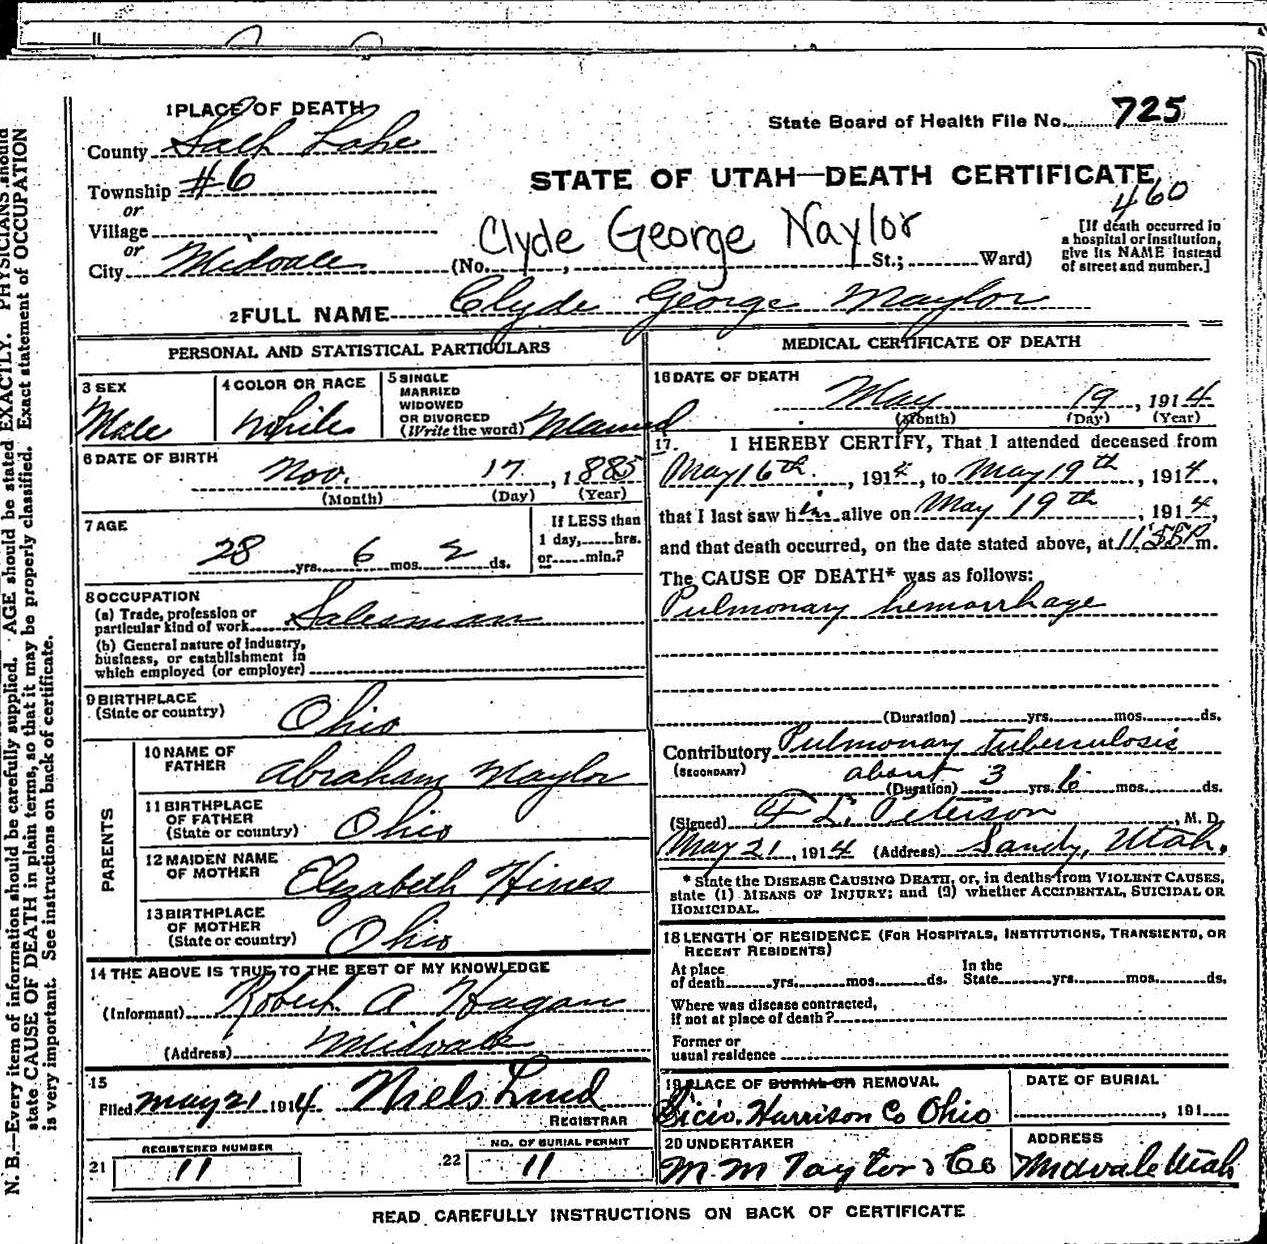 1 PLACE OF DEATH
County Salt Lake
Township #6
or
Village
or
City Midvale
State Board of Health File No. 725
STATE OF UTAH—DEATH CERTIFICATE
460
Clyde George Naylor
(No. , St.; Ward)
[If death occurred in
a hospital or institution,
give its NAME instead
of street and number.]
2 FULL NAME Clyde George Naylor
PERSONAL AND STATISTICAL PARTICULARS
3 SEX
Male
4 COLOR OR RACE
White
5 SINGLE
MARRIED
WIDOWED
OR DIVORCED
(Write the word) Married
6 DATE OF BIRTH
Nov. 17, 1885
(Month) (Day) (Year)
7 AGE
28 yrs. 6 mos. 2 ds.
If LESS than
1 day, hrs.
or min.?
8 OCCUPATION
(a) Trade, profession or
particular kind of work Salesman
(b) General nature of industry,
business, or establishment in
which employed (or employer)
9 BIRTHPLACE
(State or country)
Ohio
PARENTS
10 NAME OF
FATHER
Abraham Naylor
11 BIRTHPLACE
OF FATHER
(State or country) Ohio
12 MAIDEN NAME
OF MOTHER
Elizabeth Hines
13 BIRTHPLACE
OF MOTHER
(State or country) Ohio
14 THE ABOVE IS TRUE TO THE BEST OF MY KNOWLEDGE
(Informant) Robert A Hagan
(Address) Midvale
15
Filed May 21 1914 Niels Lind
REGISTRAR
REGISTERED NUMBER
21 11
NO. OF BURIAL PERMIT
22 11
MEDICAL CERTIFICATE OF DEATH
16 DATE OF DEATH
May 19, 1914
(Month) (Day) (Year)
17. I HEREBY CERTIFY, That I attended deceased from
May 16th, 1914, to May 19th, 1914,
that I last saw him alive on May 19th, 1914,
and that death occurred, on the date stated above, at 11:55P m.
The CAUSE OF DEATH* was as follows:
Pulmonary hemorrhage
(Duration) yrs. mos. ds.
Contributory Pulmonary tuberculosis
(SECONDARY)
about 3 yrs. 6 mos. ds.
(Duration)
(Signed) F L. Peterson, M. D.
May 21, 1914 (Address) Sandy, Utah.
* State the DISEASE CAUSING DEATH, or, in deaths from VIOLENT CAUSES,
state (1) MEANS OF INJURY; and (2) whether ACCIDENTAL, SUICIDAL OR
HOMICIDAL.
18 LENGTH OF RESIDENCE (FOR HOSPITALS, INSTITUTIONS, TRANSIENTS, OR
RECENT RESIDENTS)
At place
of death yrs. mos. ds.
In the
State yrs. mos. ds.
Where was disease contracted,
If not at place of death?
Former or
usual residence
19 PLACE OF BURIAL OR REMOVAL
Scio. Harrison Co Ohio
DATE OF BURIAL
, 191
20 UNDERTAKER
M. M Taylor & Co
ADDRESS
Midvale Utah
READ CAREFULLY INSTRUCTIONS ON BACK OF CERTIFICATE
N. B.—Every item of information should be carefully supplied. AGE should be stated EXACTLY. PHYSICIANS should
state CAUSE OF DEATH in plain terms, so that it may be properly classified. Exact statement of OCCUPATION
is very important. See instructions on back of certificate.